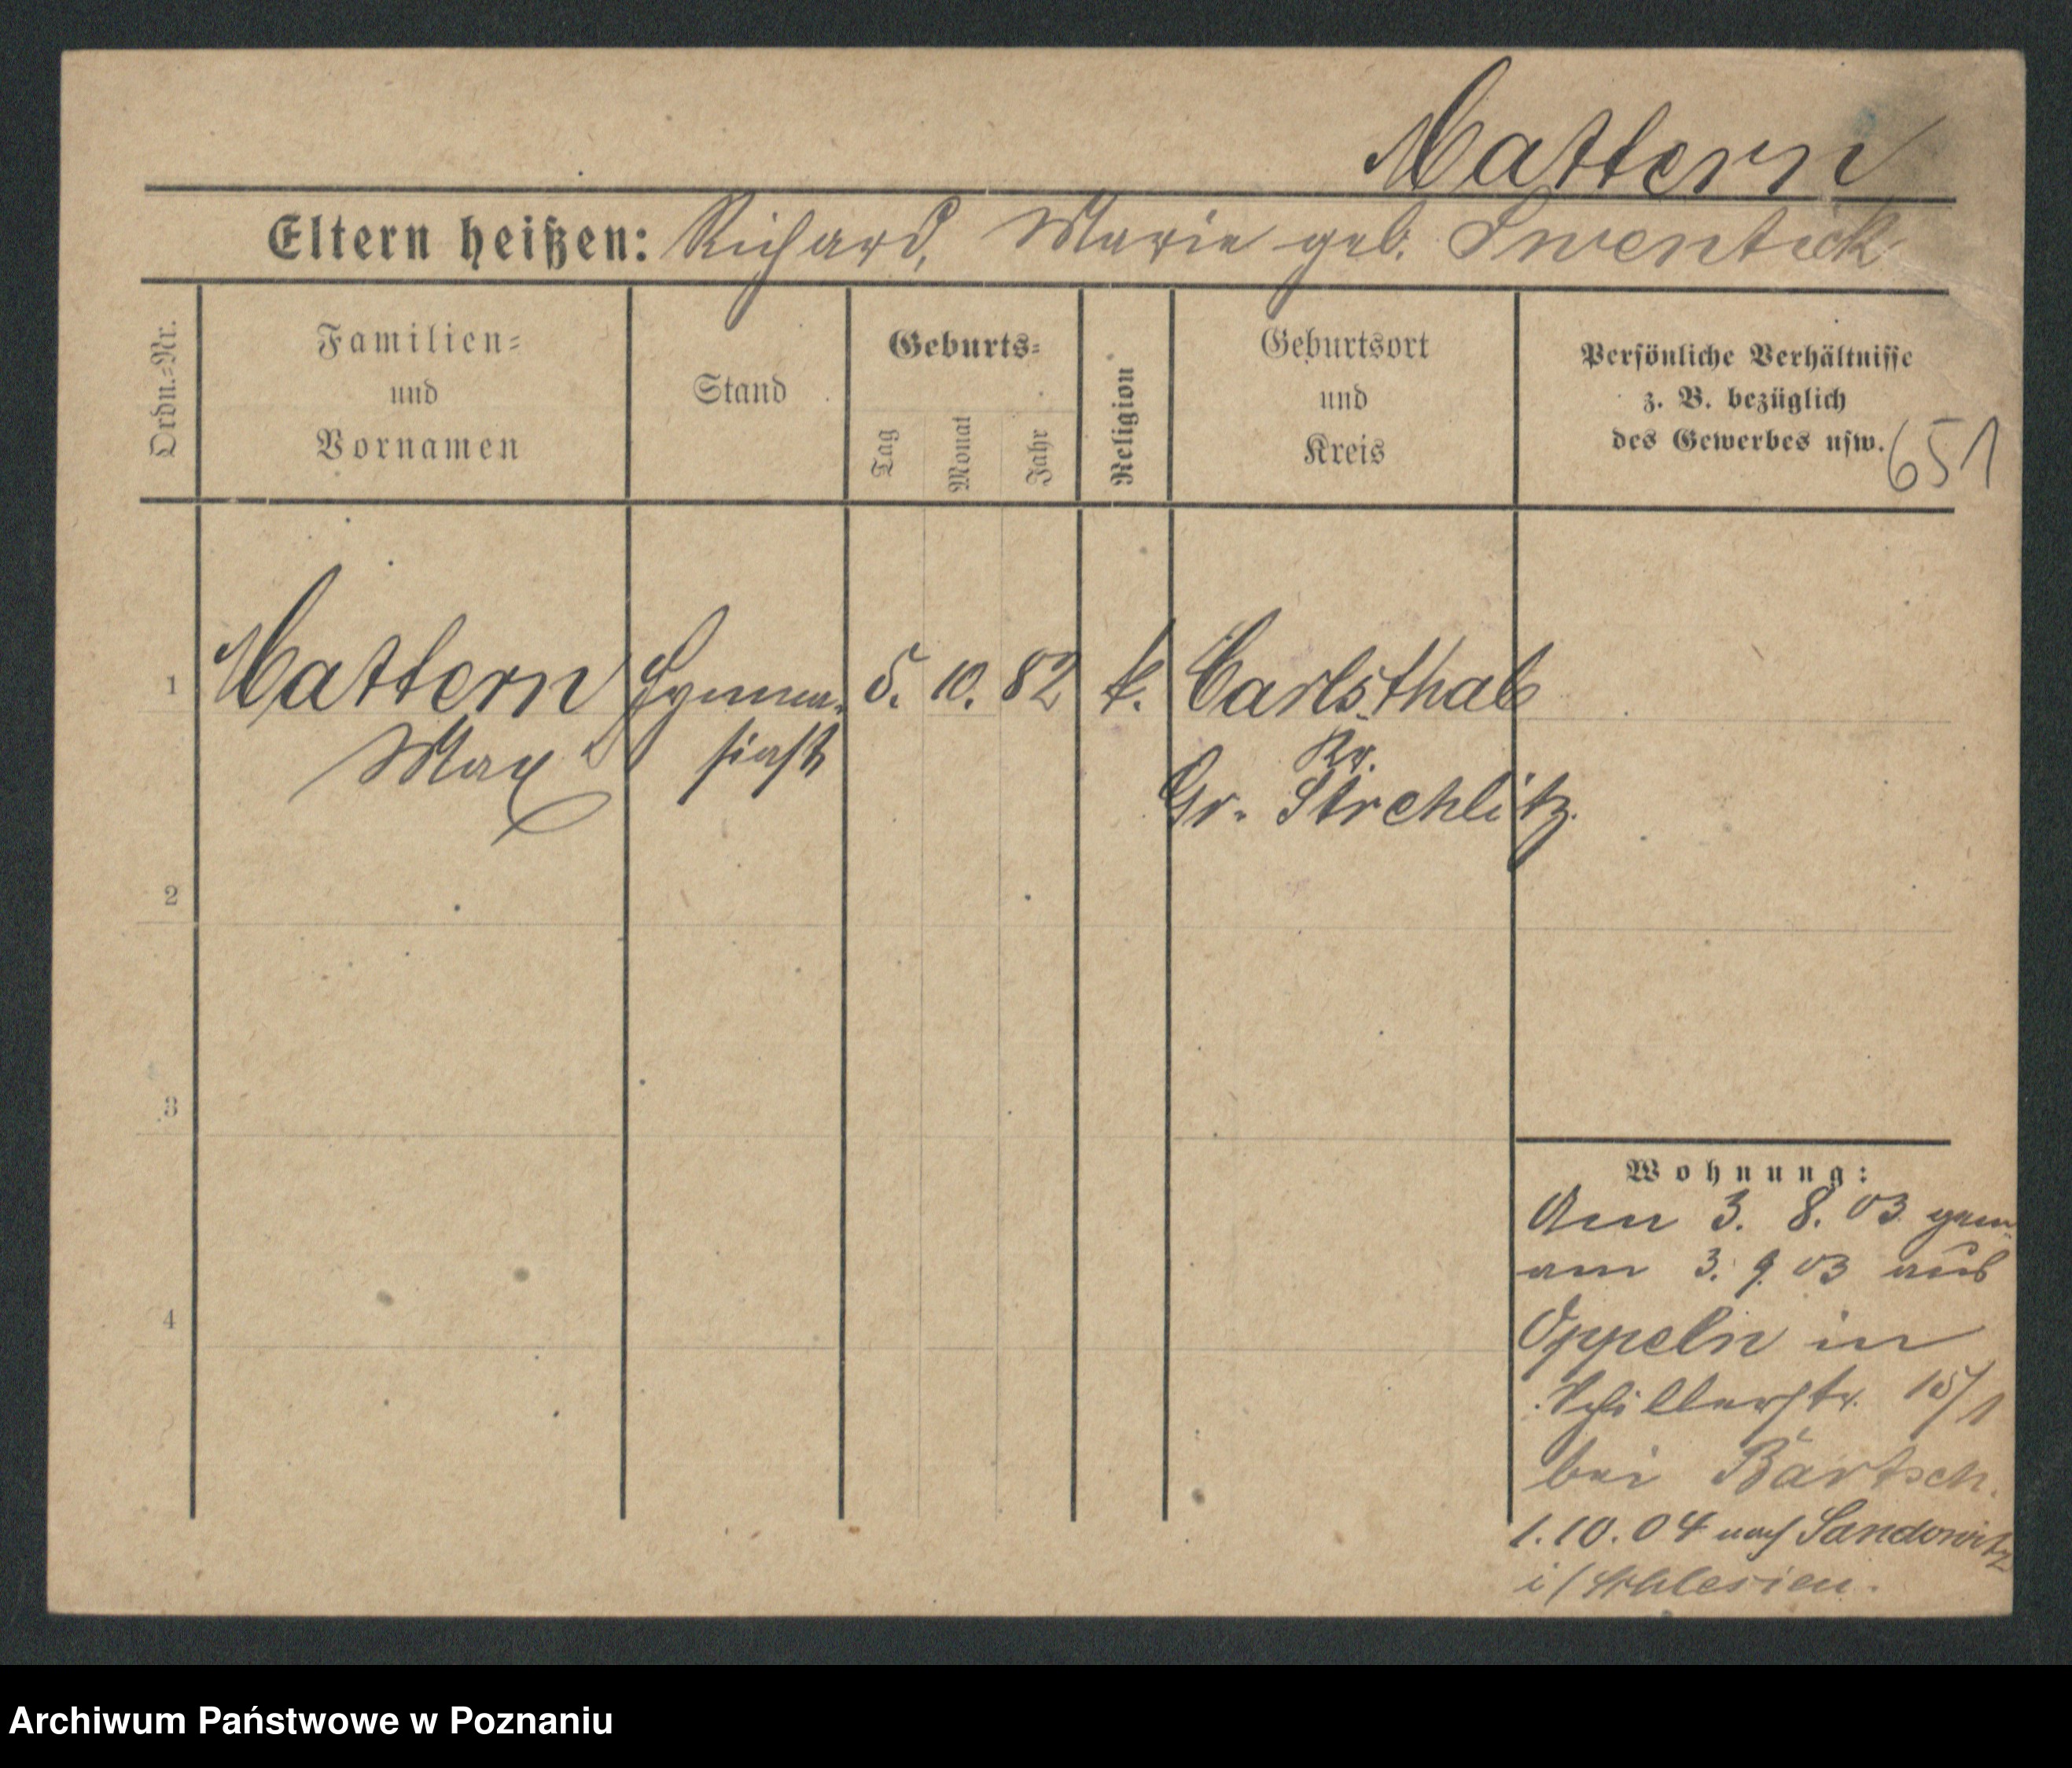 Mattern
Eltern heißen: Richard, Marie geb. Swentick
Ordn.=Nr.
Familien=
und
Vornamen
Stand
Geburts=
Tag
Monat
Jahr
Religion
Geburtsort
und
Kreis
Persönliche Verhältnisse
z. B. bezüglich
des Gewerbes usw.
651
1 Mattern Gymna- 5. 10. 82 k. Carlsthal
Max siast Kr.
Gr. Strehlitz.
2
3
4
Wohnung:
Am 3. 8. 03 gem.
am 3. 9. 03 aus
Oppeln in
Schillerstr. 15/1
bei Bartsch.
1. 10. 04 nach Sandowitz
i/Schlesien.
Archiwum Państwowe w Poznaniu